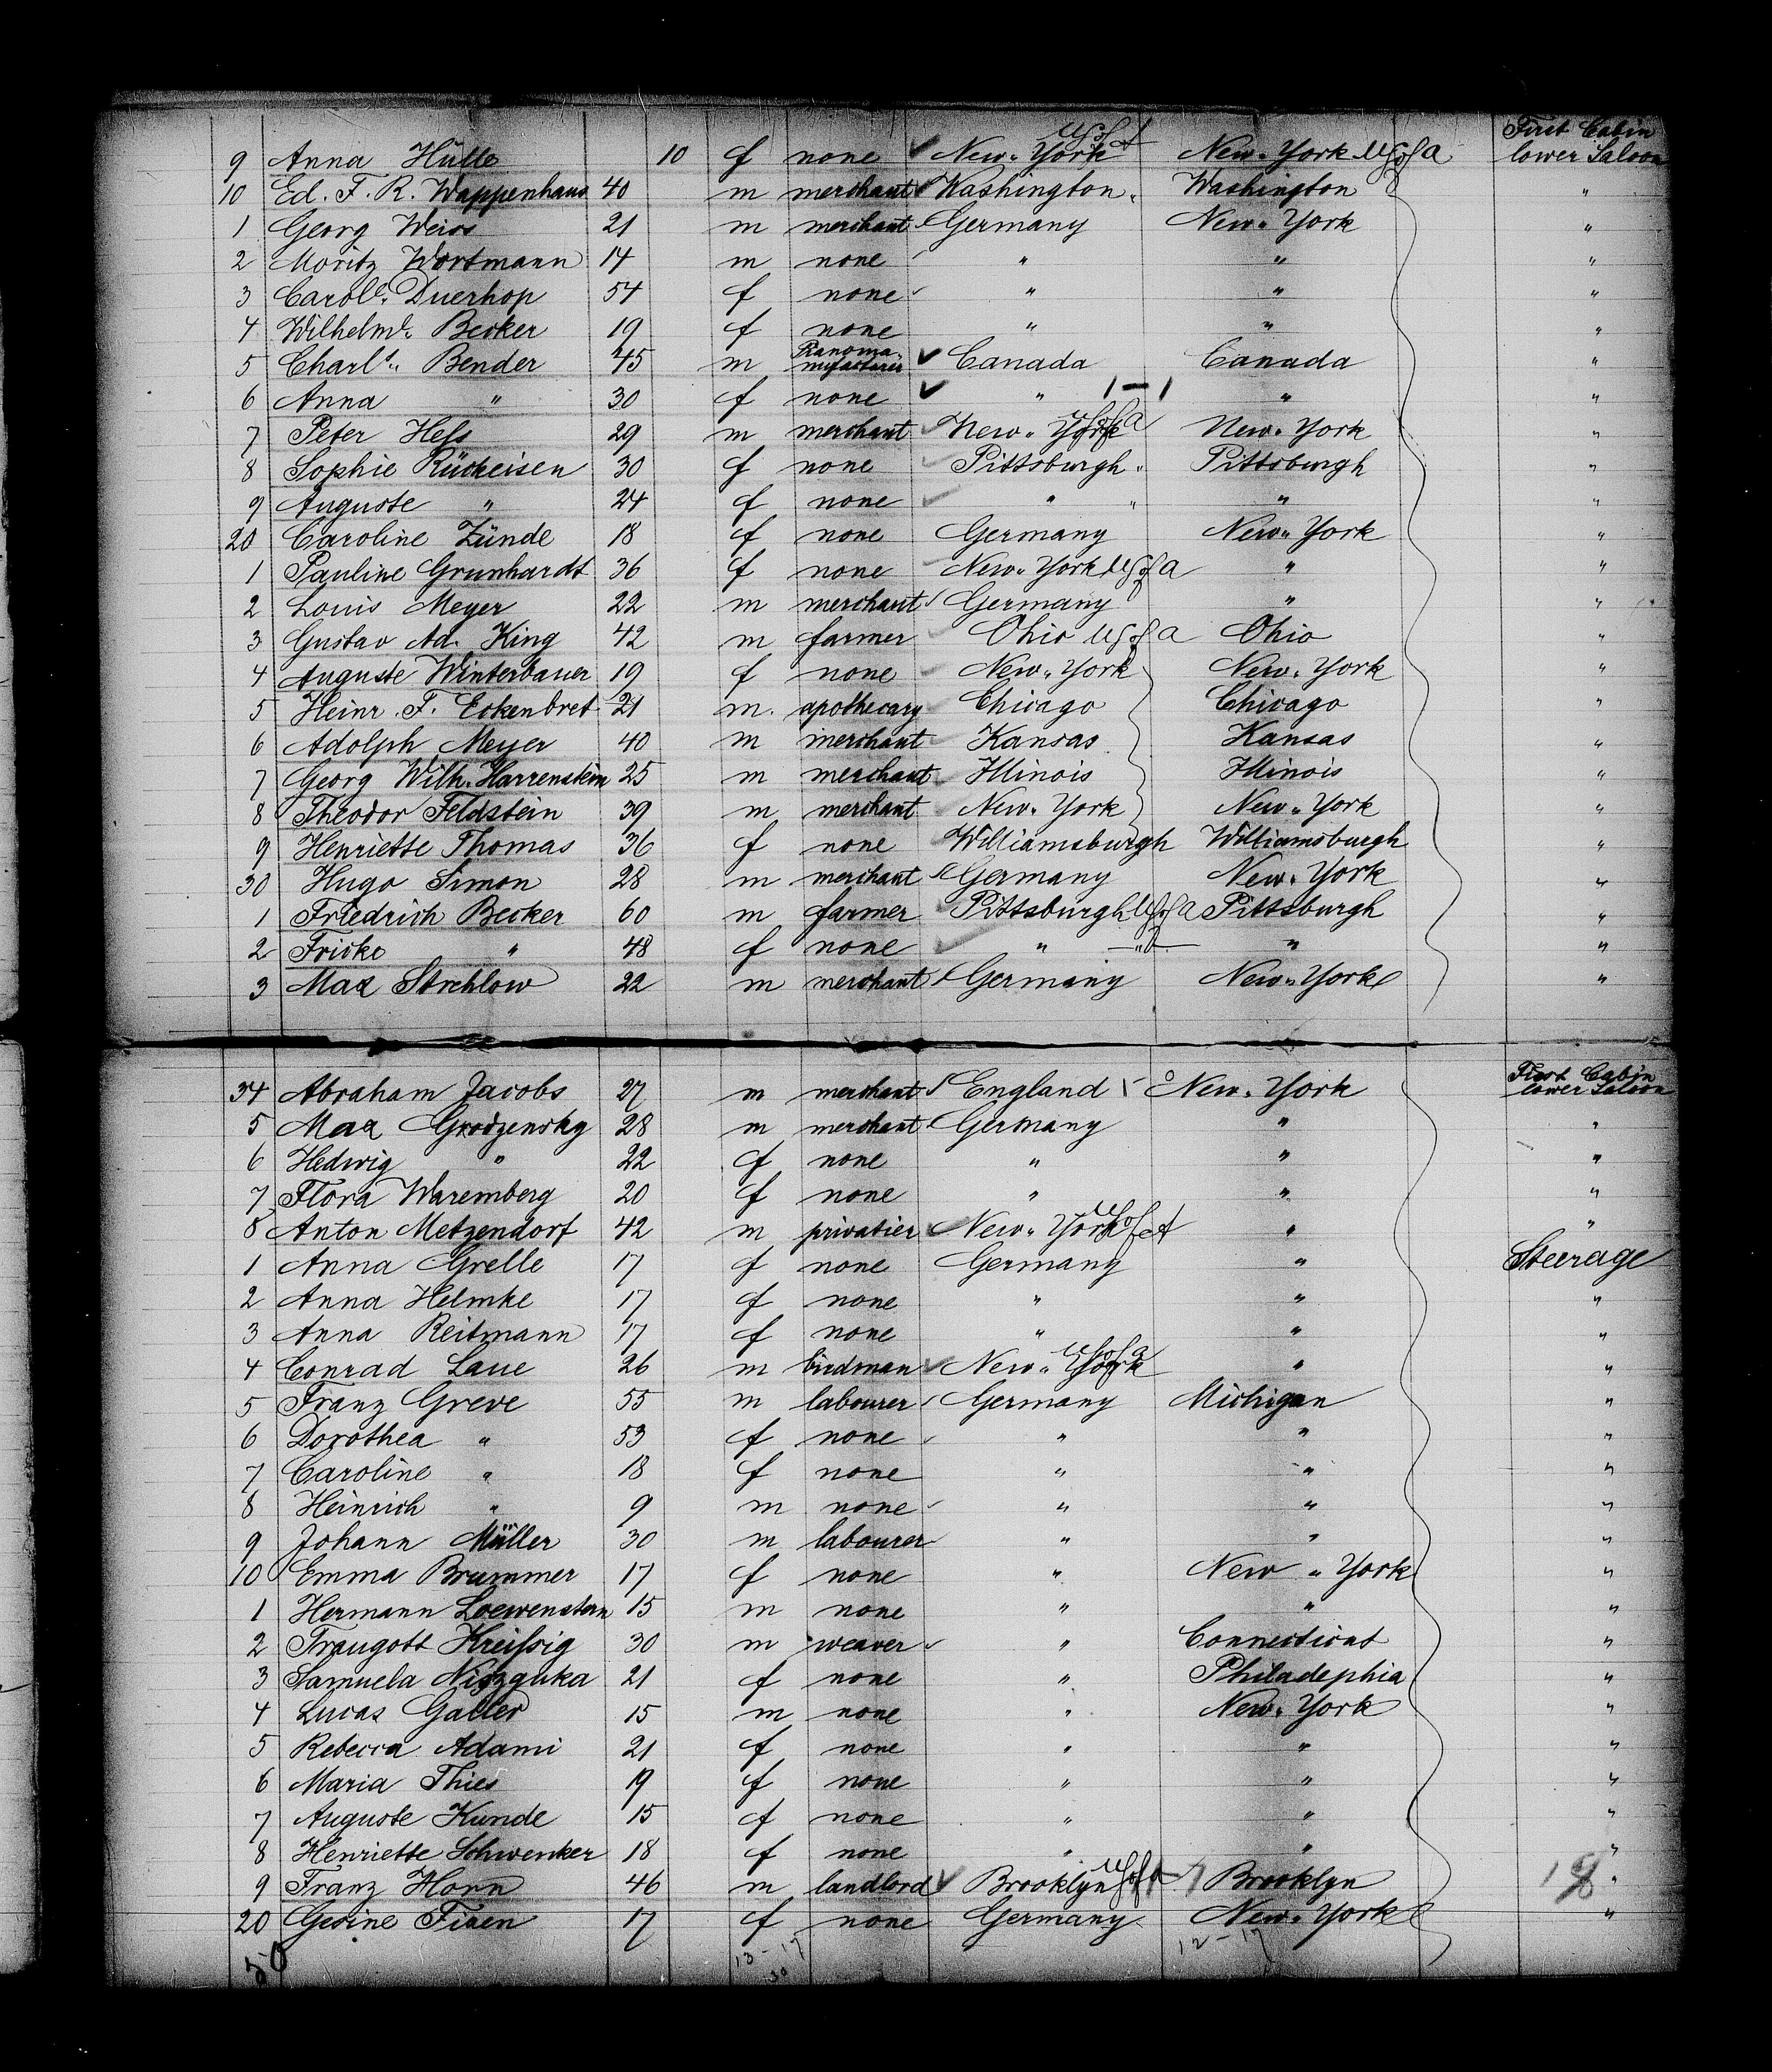 First Cabin
9 Anna Hülle 10 f none New-York U S of A New-York U S of A lower Saloon
10 Ed. F. R. Wappenhaus 40 m merchant Washington " Washington "
1 Georg Weiss 21 m merchant Germany New-York "
2 Moritz Wortmann 14 m none " " "
3 Carole. Duerhop 54 f none " " "
4 Wilhelme. Becker 19 f none " " "
5 Charls. Bender 45 m Pianoma-nufacturer Canada Canada "
6 Anna " 30 f none " 1-1 " "
7 Peter Hess 29 m merchant New-York U S of A New-York "
8 Sophie Rückeisen 30 f none Pittsburgh " Pittsburgh "
9 Auguste " 24 f none " " " "
20 Caroline Zünde 18 f none Germany New-York "
1 Pauline Grunhardt 36 f none New-York U S of A " "
2 Louis Meyer 22 m merchant Germany " "
3 Gustav Ad. King 42 m farmer Ohio U S of A Ohio "
4 Auguste Winterbauer 19 f none New-York New-York "
5 Heinr. F. Eckenbret 21 m. apothecary Chicago Chicago "
6 Adolph Meyer 40 m merchant Kansas Kansas "
7 Georg Wilh. Harrenstein 25 m merchant Illinois Illinois "
8 Theodor Feldstein 39 m merchant New-York New-York "
9 Henriette Thomas 36 f none Williamsburgh Williamsburgh "
30 Hugo Simon 28 m merchant Germany New-York "
1 Friedrich Becker 60 m farmer Pittsburgh U S of A Pittsburgh "
2 Fricke " 48 f none " -"- " "
3 Max Strehlow 22 m merchant Germany New-York "
First Cabin
34 Abraham Jacobs 27 m merchant England New-York lower Saloon
5 Max Grodzensky 28 m merchant Germany " "
6 Hedwig " 22 f none " " "
7 Flora Waremberg 20 f none " " "
8 Anton Metzendorf 42 m privatier New-York U S of A " "
1 Anna Grelle 17 f none Germany " Steerage
2 Anna Helmke 17 f none " " "
3 Anna Reitmann 17 f none " " "
4 Conrad Laue 26 m birdman New-York U S of A " "
5 Franz Greve 55 m labourer Germany Michigan "
6 Dorothea " 53 f none " " "
7 Caroline " 18 f none " " "
8 Heinrich " 9 m none " " "
9 Johann Müller 30 m labourer " " "
10 Emma Brummer 17 f none " New-York "
1 Hermann Loewenstern 15 m none " " "
2 Traugott Kreissig 30 m weaver " Connecticut "
3 Samuela 21 f none " Philadephia "
4 Lucas Galler 15 m none " New-York "
5 Rebecca Adami 21 f none " " "
6 Maria Thies 19 f none " " "
7 Auguste Kunde 15 f none " " "
8 Henriette Schwenker 18 f none " " "
9 Franz Horn 46 m landlord Brooklyn U S of A Brooklyn "
20 Gesine Fixen 17 f none Germany New-York "
50 13-17 12-17
30